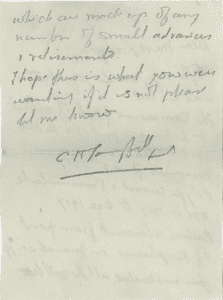 which are made up of any
number of small advances
& retirements
I hope this is what you were
wanting if it is not please
let me know